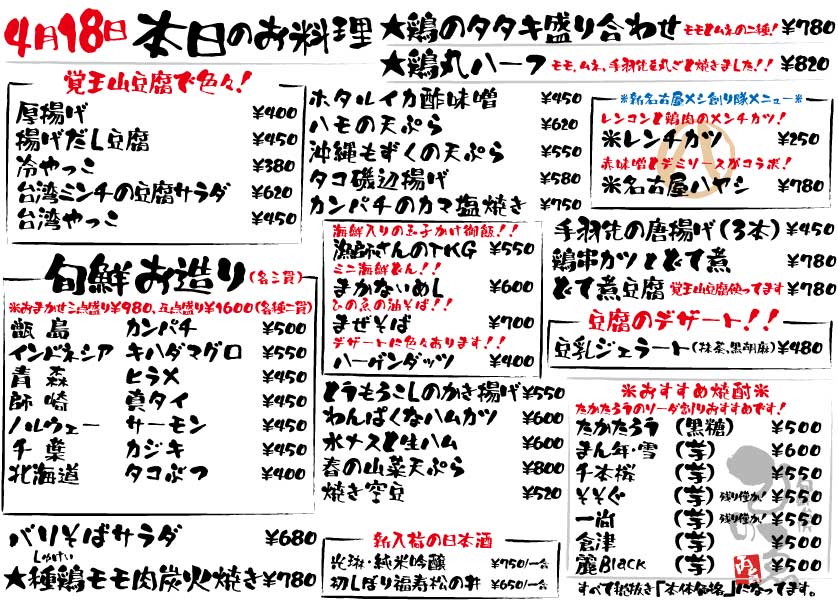 4月18日 本日のお料理
★鶏のタタキ盛り合わせ モモとムネの二種! ¥780
★鶏丸ハーフ モモ、ムネ、手羽先を丸ごと焼きました!! ¥820
覚王山豆腐で色々!
厚揚げ ¥400
揚げだし豆腐 ¥450
冷やっこ ¥380
台湾ミンチの豆腐サラダ ¥620
台湾やっこ ¥450
ホタルイカ酢味噌 ¥450
ハモの天ぷら ¥620
沖縄もずくの天ぷら ¥550
タコ磯辺揚げ ¥580
カンパチのカマ塩焼き ¥750
※新名古屋メシ創り隊メニュー※
レンコンと鶏肉のメンチカツ!
※レンチカツ ¥250
赤味噌とデミソースがコラボ!
※名古屋ハヤシ ¥780
旬鮮お造り (各二貫)
※おまかせ三点盛り¥980、五点盛り¥1600(各種二貫)
甑島 カンパチ ¥500
インドネシア キハダマグロ ¥550
青森 ヒラメ ¥450
師崎 真タイ ¥450
ノルウェー サーモン ¥450
千葉 カジキ ¥450
北海道 タコぶつ ¥400
海鮮入りの玉子かけ御飯!!
漁師さんのTKG ¥550
ミニ海鮮どん!!
まかないめし ¥600
ひの魚の油そば!!
まぜそば ¥700
デザートに色々あります!!
ハーゲンダッツ ¥400
手羽先の唐揚げ(3本) ¥450
鶏串カツとどて煮 ¥780
どて煮豆腐 覚王山豆腐使ってます ¥780
豆腐のデザート!!
豆乳ジェラート(抹茶,黒胡麻) ¥480
とうもろこしのかき揚げ ¥550
わんぱくなハムカツ ¥600
水ナスと生ハム ¥600
春の山菜天ぷら ¥800
焼き空豆 ¥520
※おすすめ焼酎※
たかたろうのソーダ割りおすすめです!
たかたろう (黒糖) ¥500
まん年・雪 (芋) ¥600
千本桜 (芋) ¥550
そそぐ (芋) 残り僅か! ¥550
一尚 (芋) 残り僅か! ¥550
倉津 (芋) ¥500
麗Black (芋) ¥500
バリそばサラダ ¥680
★種鶏モモ肉炭火焼き ¥780
新入荷の日本酒
光琳・純米吟醸 ¥750/一合
初しぼり福寿松の井 ¥650/一合
すべて税抜き「本体価格」になってます。